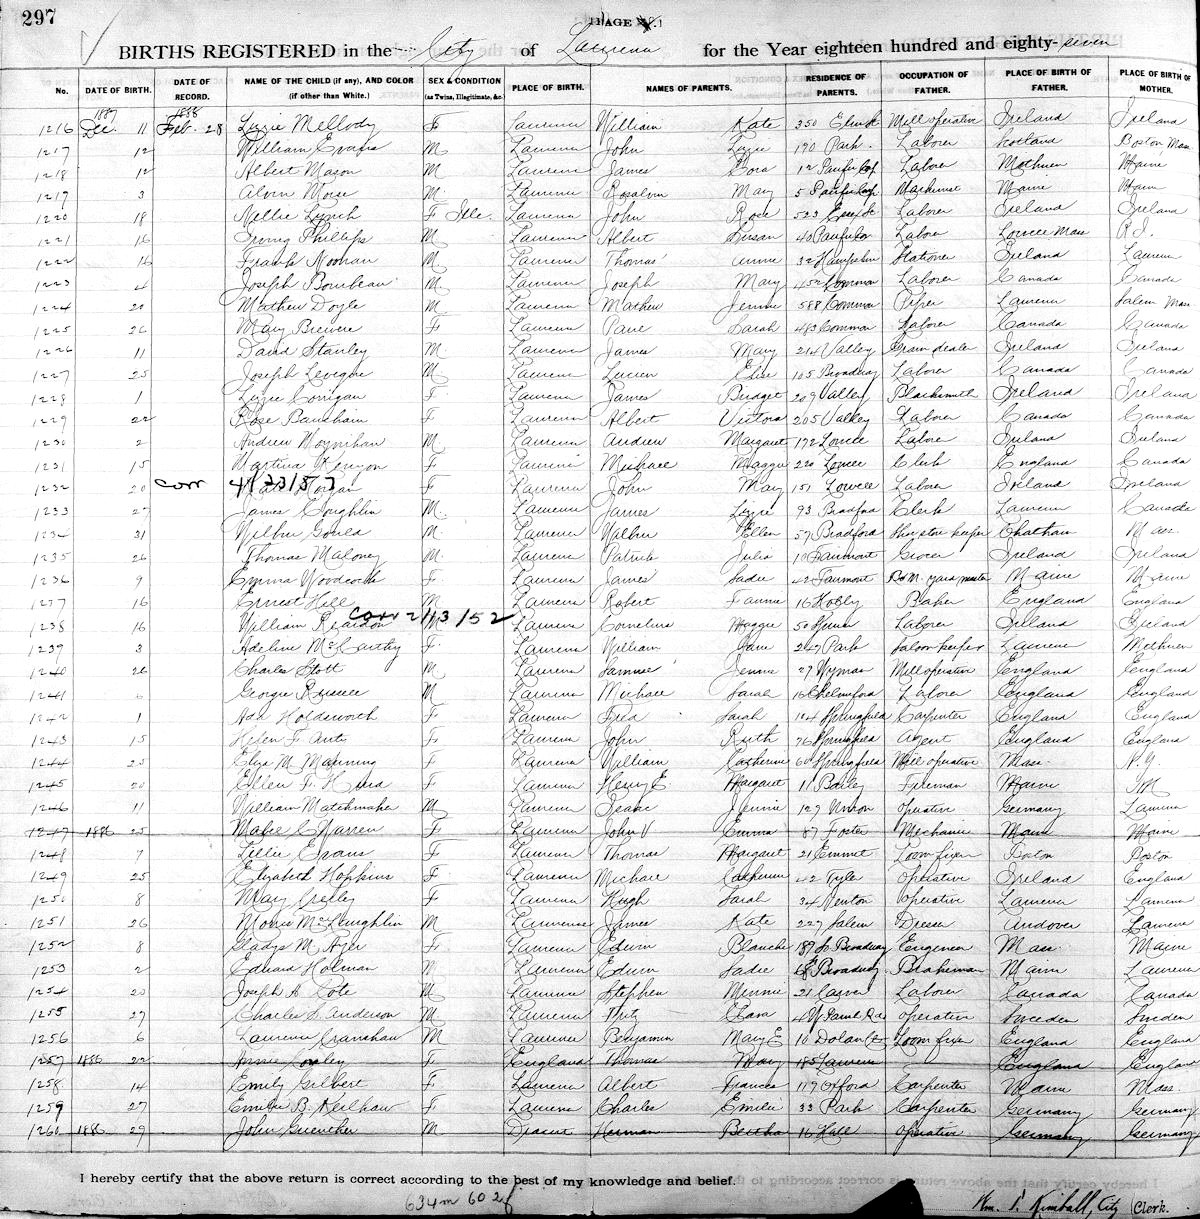 297
PAGE
BIRTHS REGISTERED in the City of Lawrence for the Year eighteen hundred and eighty-seven
No. DATE OF BIRTH. DATE OF RECORD. NAME OF THE CHILD (if any), AND COLOR (if other than White.) SEX & CONDITION (as Twins, Illegitimate, &c.) PLACE OF BIRTH. NAMES OF PARENTS. RESIDENCE OF PARENTS. OCCUPATION OF FATHER. PLACE OF BIRTH OF FATHER. PLACE OF BIRTH OF MOTHER.
1887 1888
1216 Dec. 11 Feb. 28 Lizzie Mellody F Lawrence William Kate 350 Elm Mill operative Ireland Ireland
1217 12 William Evans M Lawrence John Lizzie 190 Park Laborer Scotland Boston Mass
1218 12 Albert Mason M Lawrence James Cora 12 Pacific Cop Labor Methuen Maine
1219 3 Alvin Morse M Lawrence Rosalvin May 5 Pacific Corp Machinist Maine Maine
1220 18 Nellie Lynch F Ille. Lawrence John Rose 523 Essex St Laborer Ireland Ireland
1221 16 Irving Phillips M Lawrence Albert Susan 40 Pacific Cor Laborer Lowell Mass R.I.
1222 16 Frank Noonan M Lawrence Thomas Annie 32 Hampshire Stationer Ireland Lawrence
1223 4 Joseph Bourbeau M Lawrence Joseph Mary 452 Common Laborer Canada Canada
1224 20 Mathew Doyle M Lawrence Mathew Jennie 588 Common Piper Lawrence Salem Mass
1225 26 Mary Brewere F Lawrence Paul Sarah 483 Common Laborer Canada Canada
1226 11 David Stanley M Lawrence James Mary 214 Valley Grain dealer Ireland Ireland
1227 25 Joseph Levigne M Lawrence Lucien Elise 105 Broadway Laborer Canada Canada
1228 1 Lizzie Corrigan F Lawrence James Bridget 209 Valley Blacksmith Ireland Ireland
1229 22 Rose F Lawrence Albert Victora 205 Valley Laborer Canada Canada
1230 2 Andrew Moynihan M Lawrence Andrew Margaret 172 Lowell Labore Ireland Ireland
1231 15 Martina Kenyon F Lawrence Michael Maggie 220 Lowell Clerk England Canada
1232 20 corr 4/23/57 Horgan F Lawrence John May 151 Lowell Laborer Ireland Ireland
1233 27 James Coughlin M Lawrence James Lizzie 93 Bradford Clerk Lawrence Canada
1234 31 Wilbur Gould M Lawrence Wilbur Ellen 57 Bradford keeper Chatham Mass.
1235 26 Thomas Maloney M Lawrence Patrick Julia 10 Fairmont Grocer Ireland Ireland
1236 9 Emma Woodcock F Lawrence James Sadie 42 Fairmont B&M. yard master Maine Maine
1237 16 Ernest Hill M Lawrence Robert Fannie 16 Holly Baker England England
corr 2/13/52
1238 16 William Reardon M Lawrence Cornelius Maggie 50 Laborer Ireland Ireland
1239 3 Adeline McCarthy F Lawrence William Jane 247 Park Saloon keeper Lawrence Methuen
1240 26 Charles Stott M Lawrence Samuel Jennie 27 Wyman Mill operative England England
1241 6 George Russell M Lawrence Michael Sarah 16 Chelmsford Labore England England
1242 1 Ada Holdsworth F Lawrence Fred Sarah 124 Springfield Carpenter England England
1243 15 Helen F. F Lawrence John Ruth 76 Springfield Agent England England
1244 25 Eliza M. Manning F Lawrence William Catherine 60 Springfield Mill operative Mass. N.Y.
1245 21 Ellen F. F Lawrence Henry E Margaret 11 Bailey Fireman Maine
1246 11 William Matchmaker M Lawrence Isaac Jennie 127 Union Operative Germany Lawrence
1247 1886 25 Mabel C Warren F Lawrence John V Emma 87 Foster Mechanic Maine Maine
1248 7 Lillie Evans F Lawrence Thomas Margaret 21 Emmet Loom fixer Boston Boston
1249 25 Elizabeth Hopkins F Lawrence Michael Catherine 42 Tyler Operative Ireland England
1250 8 May Crelley F Lawrence Hugh Sarah 34 Newton Operative Lawrence Lawrence
1251 26 Morris McLaughlin M Lawrence James Kate 227 Salem Dresser Andover Lawrence
1252 8 Gladys M. Ayer F Lawrence Edwin Blanche 189 So Broadway Engineer Mass. Maine
1253 2 Edward Holman M Lawrence Edwin Sadie Broadway Brakeman Maine Lawrence
1254 20 Joseph A Cote M Lawrence Stephen Minnie 21 Carver Laborer Canada Canada
1255 27 Charles S. Anderson M Lawrence Fritz Clara Operative Sweeden Sweden
1256 6 Lawrence Cranshaw M Lawrence Benjamin Mary E 10 Dolan Ct Loom fixer England England
1257 1886 22 Annie Conley F England Thomas May 185 Lawrence England England
1258 14 Emily Gilbert F Lawrence Albert Frances 117 Oxford Carpenter Maine Mass.
1259 27 Emilie B. Keilhaw F Lawrence Charles Emilie 33 Park Carpenter Germany Germany
1260 1886 29 John Guenther M Dracut Herman Bertha 16 Hall Operative Germany Germany
I hereby certify that the above return is correct according to the best of my knowledge and belief.
634 m 602 f
Wm. T. Kimball, City Clerk.